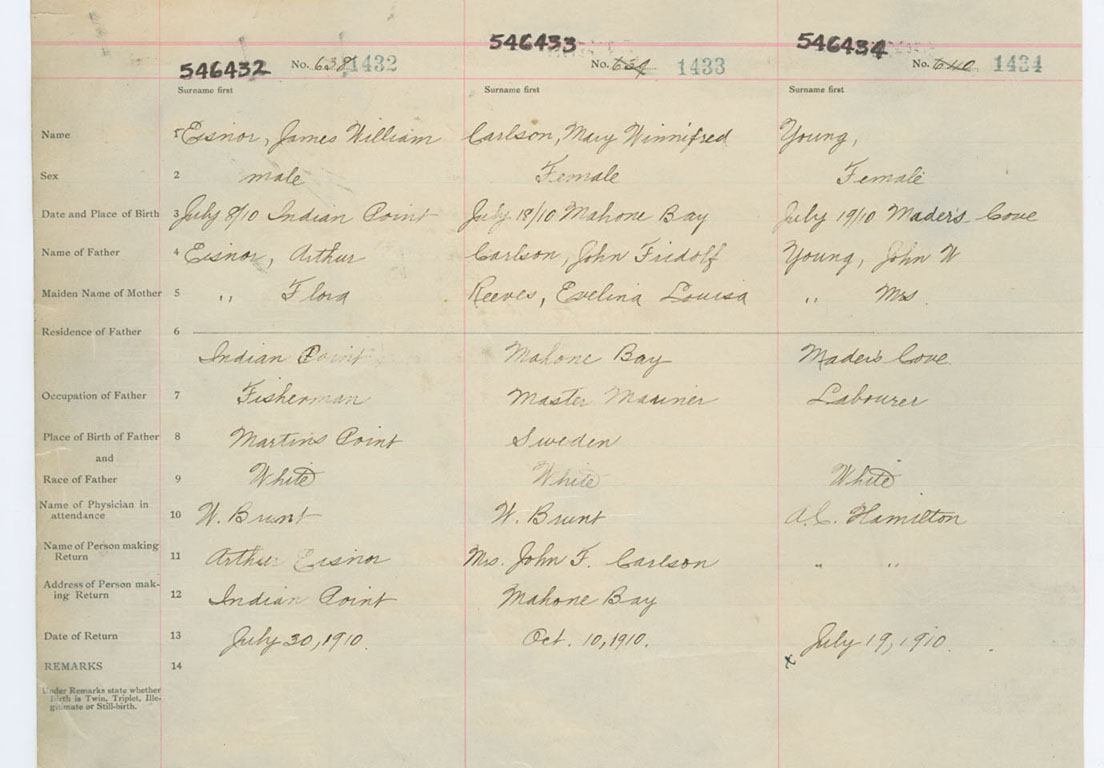 546432 546433 546434
No. 638 1432 No. 639 1433 No. 640 1434
Surname first Surname first Surname first
Name 1 Eisnor, James William Carlson, Mary Winnifred Young,
Sex 2 male Female Female
Date and Place of Birth 3 July 8/10 Indian Point July 18/10 Mahone Bay July 19/10 Maders Cove
Name of Father 4 Eisnor, Arthur Carlson, John Fridolf Young, John W
Maiden Name of Mother 5 " Flora Reeves, Evelina Louisa " Mrs.
Residence of Father 6
Indian Point Mahone Bay Maders Cove
Occupation of Father 7 Fisherman Master Mariner Labourer
Place of Birth of Father 8 Martins Point Sweden
and
Race of Father 9 White White White
Name of Physician in
attendance 10 W. Brunt W. Brunt A.C. Hamilton
Name of Person making
Return 11 Arthur Eisnor Mrs. John F. Carlson " "
Address of Person mak-
ing Return 12 Indian Point Mahone Bay
Date of Return 13 July 30, 1910. Oct. 10, 1910. x July 19, 1910.
REMARKS 14
Under Remarks state whether
Birth is Twin, Triplet, Ille-
gitimate or Still-birth.